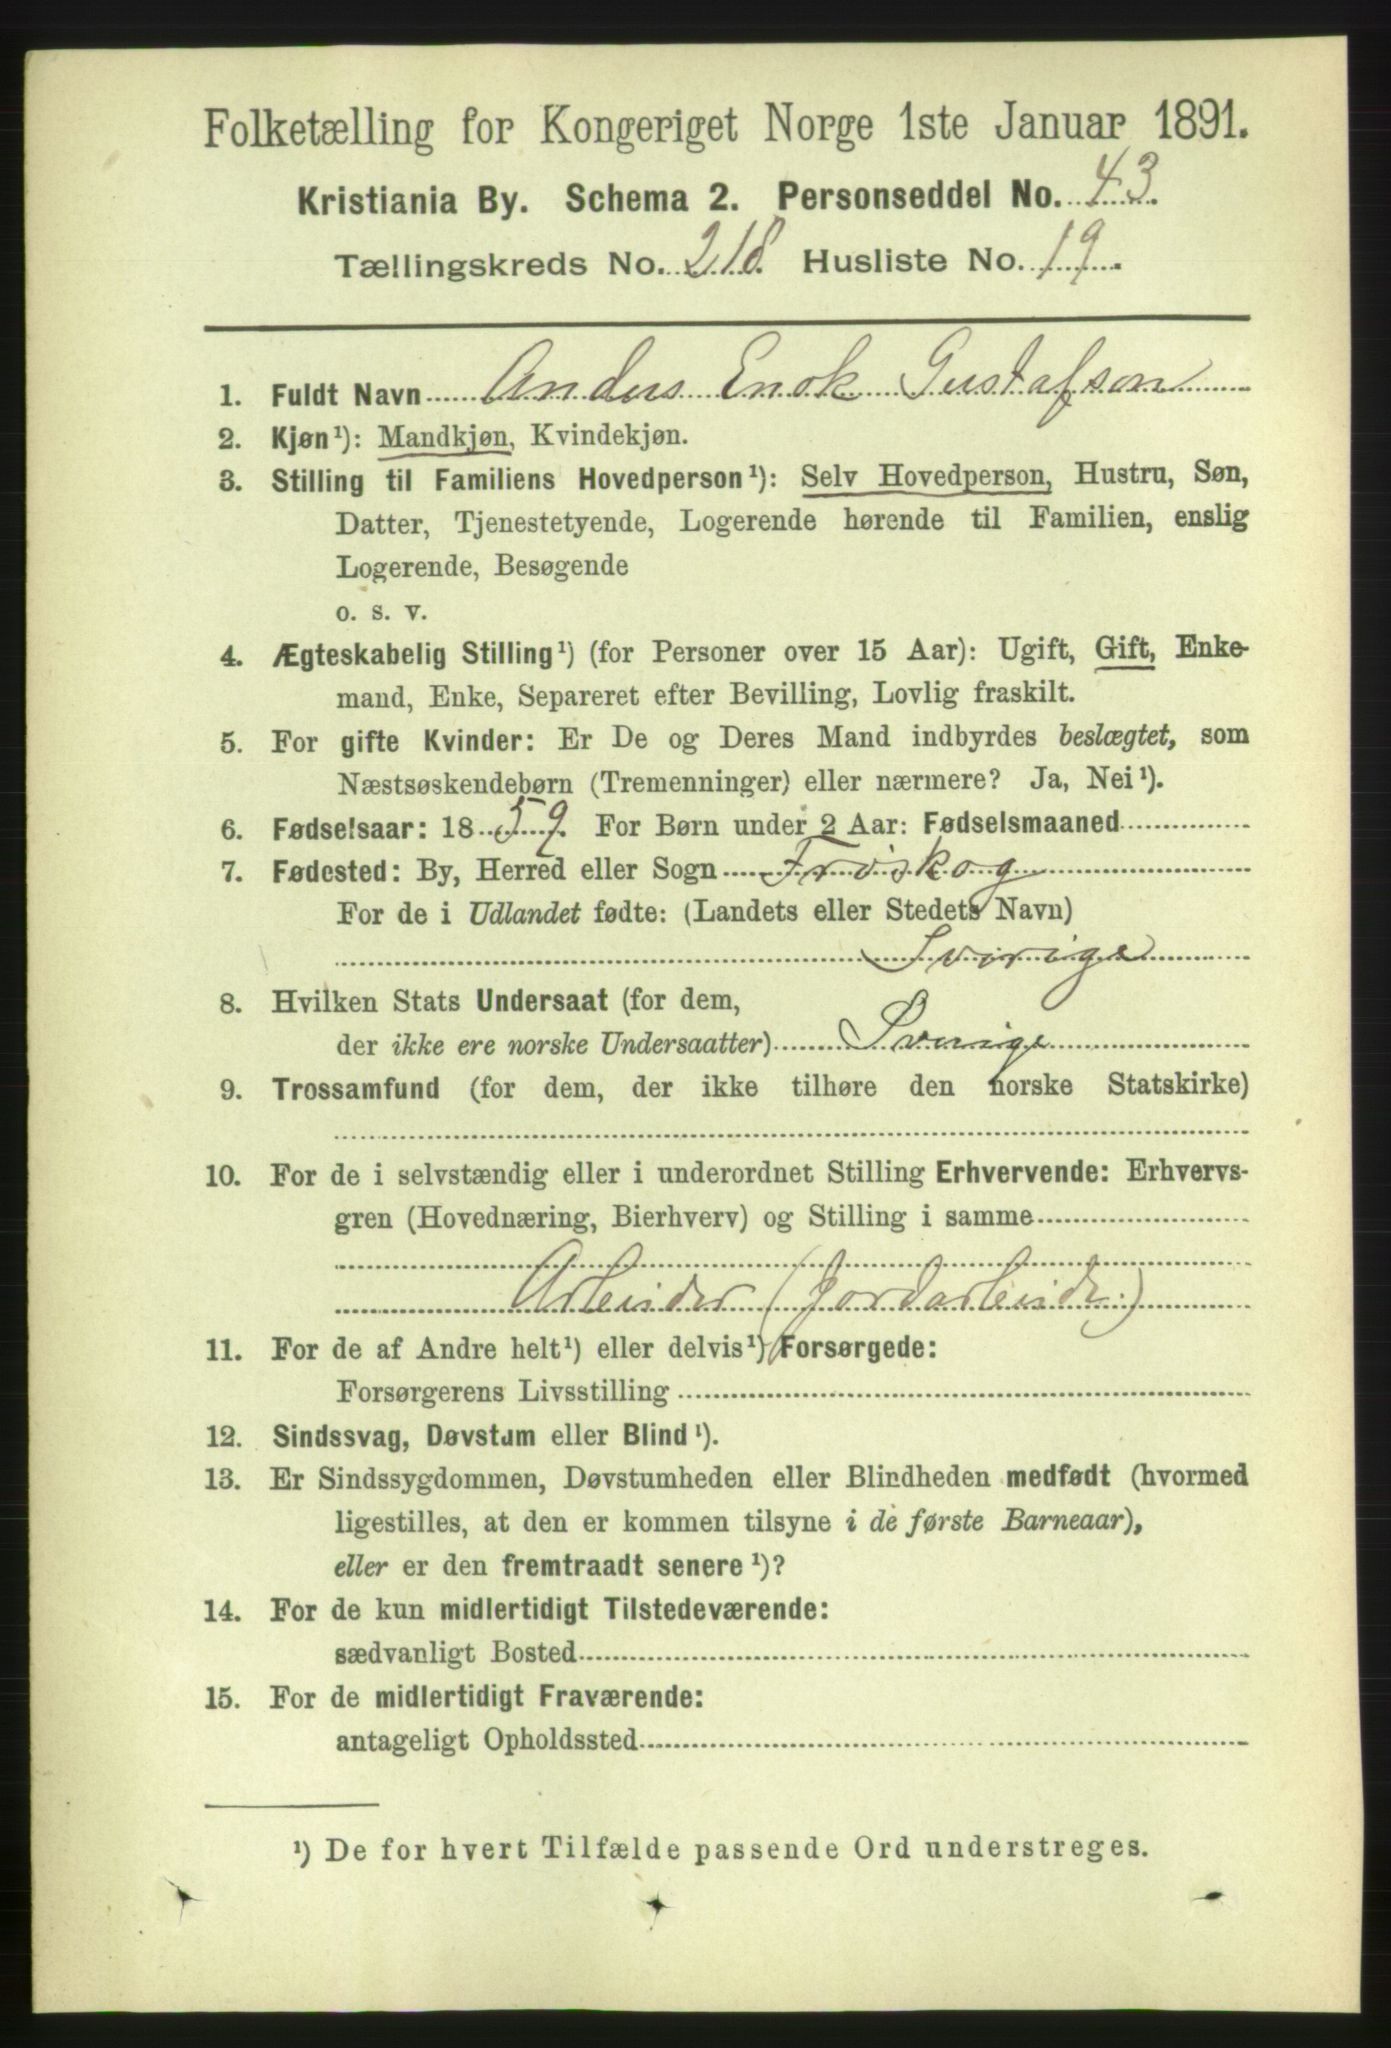 Folketælling for Kongeriget Norge 1ste Januar 1891.
Kristiania By. Schema 2. Personseddel No. 43.
Tællingskreds No. 218. Husliste No. 19.
1. Fuldt Navn Anders Enok Gustafson
2. Kjøn¹): Mandkjøn, Kvindekjøn.
3. Stilling til Familiens Hovedperson¹): Selv Hovedperson, Hustru, Søn,
Datter, Tjenestetyende, Logerende hørende til Familien, enslig
Logerende, Besøgende
o. s. v.
4. Ægteskabelig Stilling¹) (for Personer over 15 Aar): Ugift, Gift, Enke-
mand, Enke, Separeret efter Bevilling, Lovlig fraskilt.
5. For gifte Kvinder: Er De og Deres Mand indbyrdes beslægtet, som
Næstsøskendebørn (Tremenninger) eller nærmere? Ja, Nei¹).
6. Fødselsaar: 1859. For Børn under 2 Aar: Fødselsmaaned
7. Fødested: By, Herred eller Sogn Friskog
For de i Udlandet fødte: (Landets eller Stedets Navn)
Sverige
8. Hvilken Stats Undersaat (for dem,
der ikke ere norske Undersaatter) Sverige
9. Trossamfund (for dem, der ikke tilhøre den norske Statskirke)
10. For de i selvstændig eller i underordnet Stilling Erhvervende: Erhvervs-
gren (Hovednæring, Bierhverv) og Stilling i samme
Arbeider (Jordarbeide.)
11. For de af Andre helt¹) eller delvis¹) Forsørgede:
Forsørgerens Livsstilling
12. Sindssvag, Døvstum eller Blind¹).
13. Er Sindssygdommen, Døvstumheden eller Blindheden medfødt (hvormed
ligestilles, at den er kommen tilsyne i de første Barneaar),
eller er den fremtraadt senere¹)?
14. For de kun midlertidigt Tilstedeværende:
sædvanligt Bosted
15. For de midlertidigt Fraværende:
antageligt Opholdssted
¹) De for hvert Tilfælde passende Ord understreges.